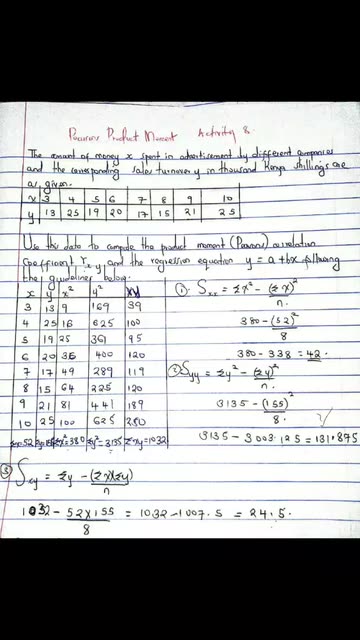 Pearsons Product Moment Activity 8.
The amount of money x spent in advertisement by different companies
and the corresponding sales turnover y in thousand Kenya shillings are
as given.
x 3 4 5 6 7 8 9 10
y 13 25 19 20 17 15 21 25
Use this data to compute the product moment (Pearsons) correlation
coefficient rxy and the regression equation y = a + bx following
the guidelines below.
x y x² y² xy
3 13 9 169 39
4 25 16 625 100
5 19 25 361 95
6 20 36 400 120
7 17 49 289 119
8 15 64 225 120
9 21 81 441 189
10 25 100 625 250
Σx=52 Σy=155 Σx²=380 Σy²=3135 Σxy=1032
① Sxx = Σx² - (Σx)²
n.
380 - (52)²
8
380 - 338 = 42.
② Syy = Σy² - (Σy)²
n.
3135 - (155)²
8.
3135 - 3003.125 = 131.875
③ Sxy = Σy - (Σx)(Σy)
n
1032 - 52 x 155 = 1032 - 1007.5 = 24.5.
8